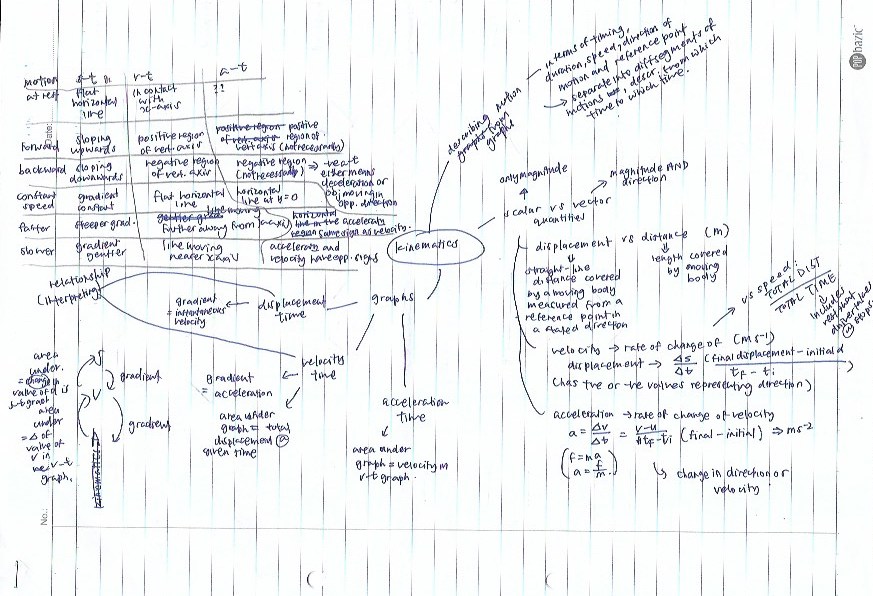 POP bazic
Date:
No.:
Motion s-t v-t a-t
at rest
flat
horizontal
line
in contact
with
x-axis
??
forward
sloping
upwards
positive region
of vert. axis
positive region positive
of vert. axis region of
vert axis (not necessarily)
backward
sloping
downwards
negative region
of vert. axis
negative region
(not necessarily) ⇒ -ve a-t
either means
deceleration or
obj moving in
opp. direction
constant
speed
gradient
constant
flat horizontal
line
horizontal
line at y=0
faster
steeper grad.
line moving
further away from x-axis
horizontal
same sign as velocity.
slower
gradient
gentler
line moving
nearer x axis
acceleration and
velocity have opp. signs
relationship
(interpreting)
kinematics
describing motion
graphs from
graphs
→ in terms of timing,
duration, speed, direction of
motion and reference point
→ separate into diff segments of
motions descr. from which
time to which time.
scalar vs vector
quantities
only magnitude
magnitude AND
direction
displacement vs distance (m)
straight-line
distance covered
by a moving body
measured from a
reference point in
a stated direction
length covered
by moving
body
velocity → rate of change of (ms-1)
displacement → Δs/Δt (final displacement - initial d / tf - ti)
(has +ve or -ve values representing direction)
vs speed:
TOTAL DIST
TOTAL TIME
includes
stops
acceleration → rate of change of velocity
a = Δv/Δt = v-u/tf-ti (final - initial) ⇒ ms-2
(f=ma
a = f/m)
↳ change in direction or
velocity
graphs
displacement
time
gradient
= instantaneous
velocity
velocity
time
gradient
= acceleration
area under
graph = total
displacement @
given time
acceleration
time
area under
graph = velocity in
v-t graph.
area
under
= change in
value of d is
s-t graph
area
under
= Δ of
value of
v in
v-t
graph.
S
V
A
gradient
gradient